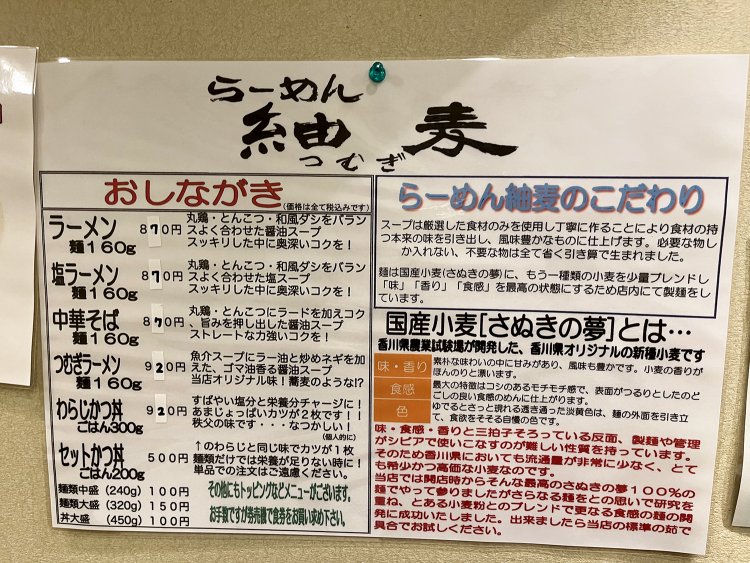 らーめん
紬麦
つむぎ
おしながき
(価格は全て税込みです)
ラーメン 870円
麺160g
丸鶏・とんこつ・和風ダシをバラン
スよく合わせた醤油スープ
スッキリした中に奥深いコクを!
塩ラーメン 870円
麺160g
丸鶏・とんこつ・和風ダシをバラン
スよく合わせた塩スープ
スッキリした中に奥深いコクを!
中華そば 870円
麺160g
丸鶏・とんこつにラードを加えコク
、旨みを押し出した醤油スープ
ストレートな力強いコクを!
つむぎラーメン 920円
麺160g
魚介スープにラー油と炒めネギを加
えた、ゴマ油香る醤油スープ
当店オリジナル味!蕎麦のような!?
わらじかつ丼 920円
ごはん300g
すぱやい塩分と栄養分チャージに!
あまじょっぱいカツが2枚です!!
秩父の味です・・・なつかしい!
(個人的に)
セットかつ丼 500円
ごはん200g
↑のわらじと同じ味でカツが1枚
麺類だけでは栄養が足りない時に!
単品での注文はご遠慮ください。
麺類中盛 (240g) 100円
麺類大盛 (320g) 150円
丼大盛 (450g) 100円
その他にもトッピングなどメニューがございます。
お手数ですが券売機で食券をお買い求め下さい。
らーめん紬麦のこだわり
スープは厳選した食材のみを使用し丁寧に作ることにより食材の持
つ本来の味を引き出し、風味豊かなものに仕上げます。必要な物し
か入れない、不要な物は全て省く引き算で生まれました。
麺は国産小麦(さぬきの夢)に、もう一種類の小麦を少量ブレンドし
「味」「香り」「食感」を最高の状態にするため店内にて製麺をし
ています。
国産小麦[さぬきの夢]とは…
香川県農業試験場が開発した、香川県オリジナルの新種小麦です
味・香り
素朴な味わいの中に甘みがあり、風味も豊かです。小麦の香りが
ほんのりと漂います。
食感
最大の特徴はコシのあるモチモチ感で、表面がつるりとしたのど
ごしの良い食感のめんに仕上がります。
色
ゆでるとさっと現れる透き通った淡黄色は、麺の外面を引き立
て、食欲をそそる自慢の色です。
味・食感・香りと三拍子そろっている反面、製麺や管理
がシビアで使いこなすのが難しい性質を持っています。
そのため香川県においても流通量が非常に少なく、とて
も希少かつ高価な小麦なのです。
当店では開店時からそんな最高のさぬきの夢100%の
麺でやって参りましたがさらなる麺をとの思いで研究を
重ね、とある小麦粉とのブレンドで更なる食感の麺の開
発に成功いたしました。出来ましたら当店の標準の茹で
具合でお試しください。